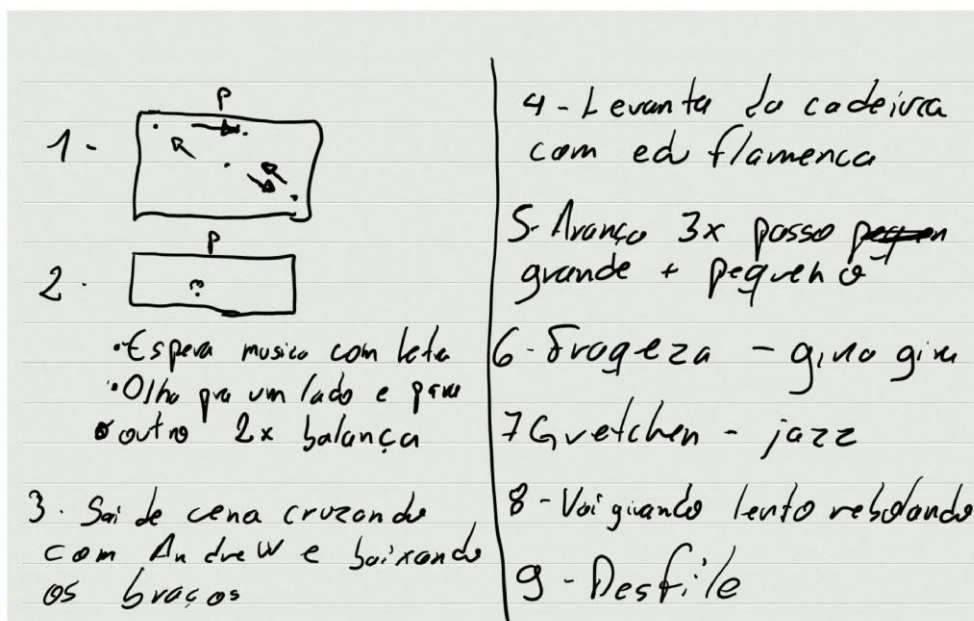 P
1-
P
2.
?
• Espera musica com letra
• Olha pra um lado e para
o outro 2x balança
3. Sai de cena cruzando
com Andrew e baixando
os braços
4 - Levanta da cadeira
com ed flamenca
5- Avanço 3x passo
grande + pequeno
6 - - gira gira
7 Gretchen - jazz
8 - Vai girando lento rebolando
9 - Desfile